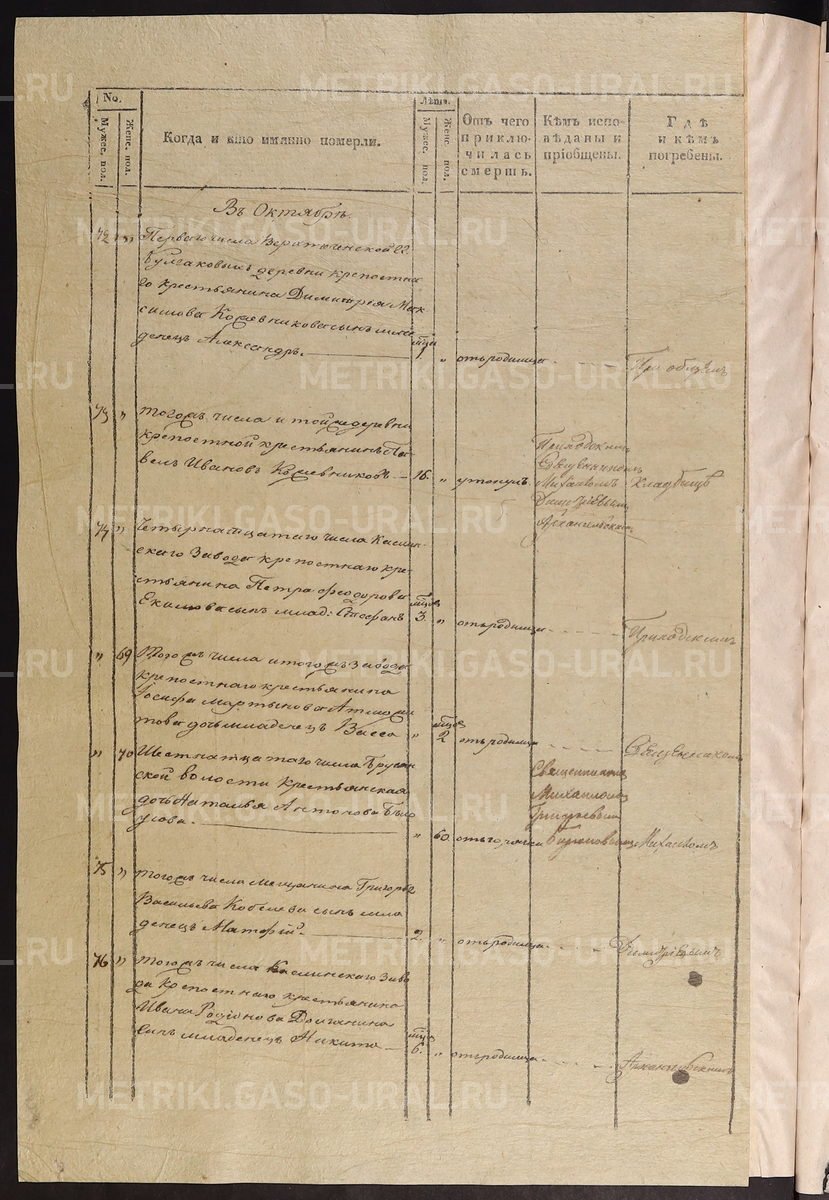 No.
Мужес. пол.
Женс. пол.
Когда и кто имянно померли.
Лѣта.
Мужес. пол.
Женс. пол.
Отъ чего приклю-чилась смерть.
Кѣмъ испо-вѣданы и пріобщены.
Гдѣ и кѣмъ погребены.
Въ Октябрѣ.
72 " Перваго числа
деревни крепостна
го крестьянина Димитрея Мак
симова Кожевникова сынъ мла
денецъ Александръ. 1. " отъ родимца При общемъ
73 " Тогожъ числа и тойже деревни
крепостной крестьянинъ Па
велъ Ивановъ Кожевниковъ 16. " утонулъ. Приходскимъ
Священникомъ
Михаиломъ
Димитріевымъ
Архангельскимъ
Кладбищѣ
74 " Четырнатцатаго числа Каслин-
скаго Завода крепостнаго кре-
стьянина Петра Феодорова
Екимова сынъ млад: Стефанъ 3. " отъ родимца Приходскимъ
" 69 Тогожъ числа и тогожъ завода
крепостнаго крестьянина
Іосифа Мартынова
това дочь младенецъ Васса " 2 отъ родимца Священникомъ
" 70 Шестнатцатаго числа
ской волости крестьянская
дочь Наталья Антонова Бѣло
усова. " 60. отъ горячки Священникомъ
Михаиломъ
Григорьевым
Михаиломъ
75 " Тогожъ числа Мещанина Григорья
Васильева Кобелева сынъ мла
денецъ Матфій. 2. " отъ родимца. Димитріевымъ
76 " Тогожъ числа Каслинскаго Заво
да крепостнаго крестьянина
Ивана Родіонова
сынъ младенецъ Никита 6. " отъ родимца Архангельскимъ
METRIKI.GASO-URAL.RU